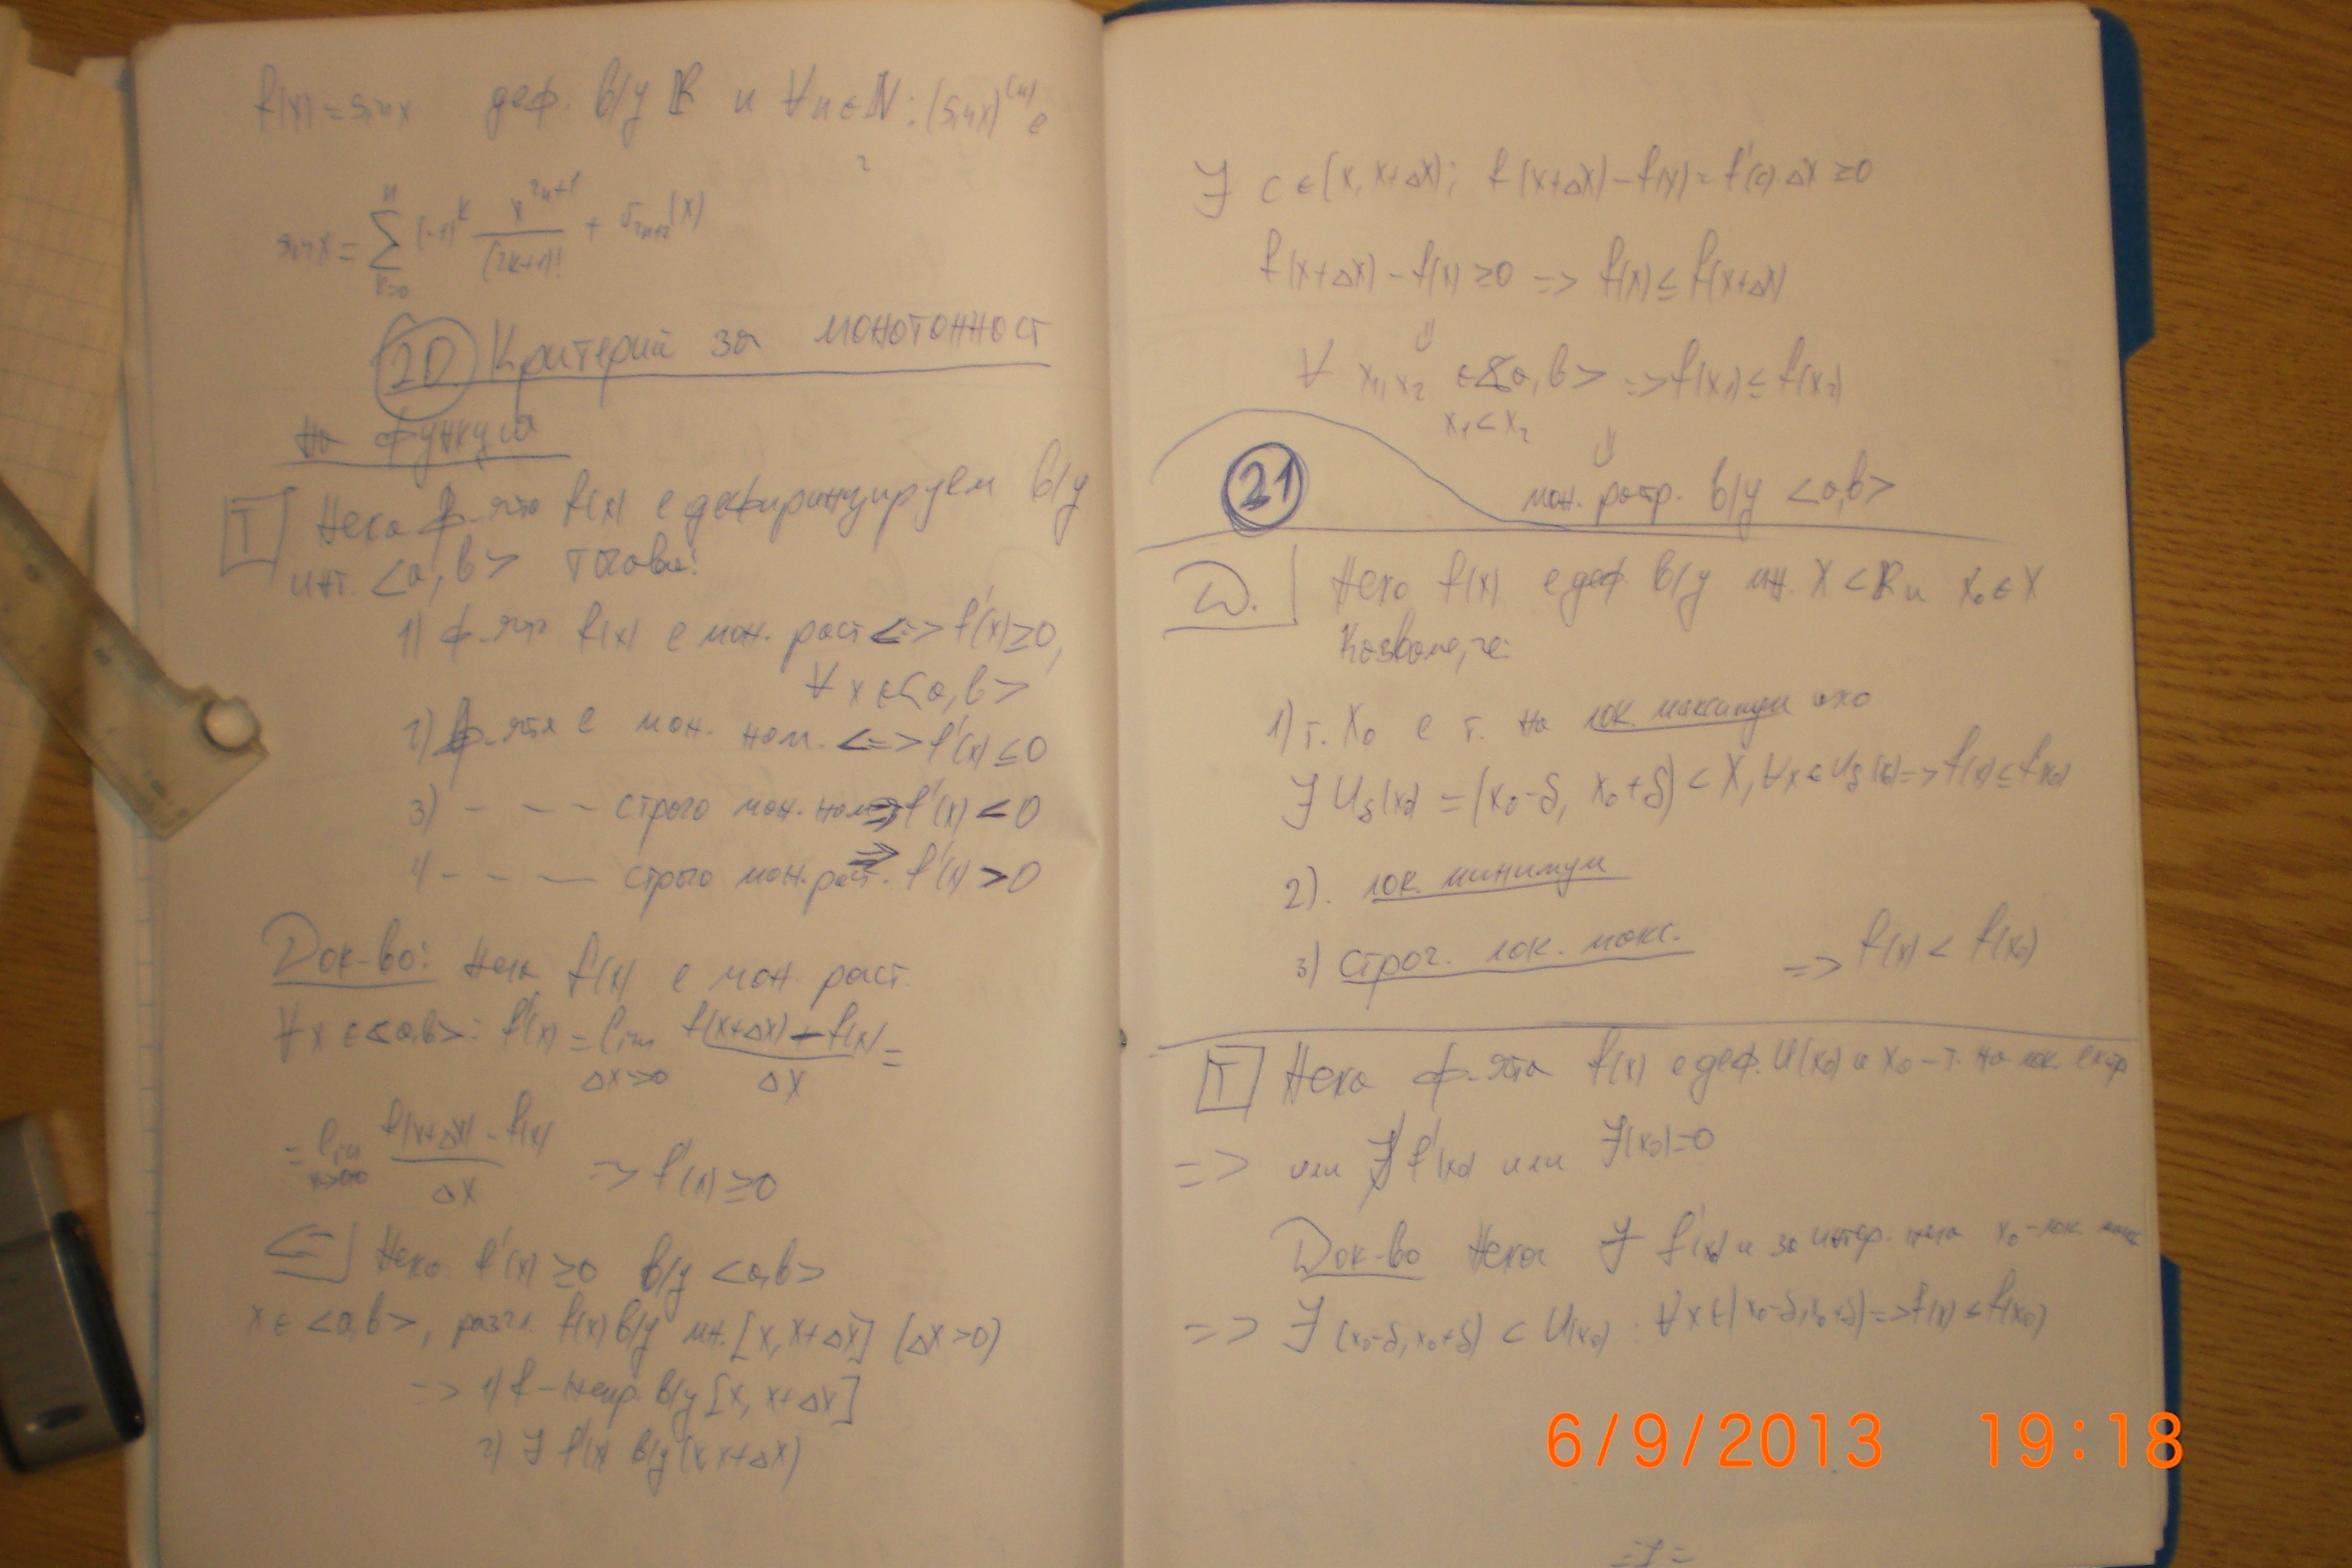 f(x)=sinx деф. в/у ℝ и ∀n∈ℕ: (sinx)⁽ⁿ⁾ е
sinx = ∑ₖ₌₀ⁿ (-1)ᵏ x²ⁿ⁺¹/(2k+1)! + r₂ₙ₊₂(x)
20. Критерий за монотонност
на функция
T Нека ф-ята f(x) е в/у
инт. <a,b> тогава:
1) ф-ята f(x) е мон. раст <=> f'(x)≥0,
∀ x ∈ <a,b>
2) ф-ята е мон. нам. <=> f'(x)≤0
3) - - - строго мон. нам => f'(x) < 0
4) - - - строго мон. раст. => f'(x) > 0
Док-во: Нека f(x) е мон. раст.
∀x ∈ <a,b>: f'(x) = lim Δx->0 f(x+Δx) - f(x) / Δx =
= lim f(x+Δx) - f(x) / Δx => f'(x) ≥ 0
<= Нека f'(x) ≥0 в/у <a,b>
x ∈ <a,b>, разгл. f(x) в/у мн. [x, x+Δx] (Δx>0)
=> 1) f - непр. в/у [x, x+Δx]
2) ∃ f'(x) в/у (x x+Δx)
∃ c ∈ (x, x+Δx); f(x+Δx) - f(x) = f'(c).Δx ≥0
f(x+Δx) - f(x) ≥0 => f(x) ≤ f(x+Δx)
⇓
∀ x₁,x₂ ∈ <a,b> => f(x₁) ≤ f(x₂)
x₁ < x₂
⇓
21
мон. раст. в/у <a,b>
D. Нека f(x) е деф. в/у мн. X ⊂ ℝ и x₀ ∈ X
Казваме, че:
1) т. x₀ е т. на лок. максимум ако
∃ Uδ(x₀) = (x₀-δ, x₀+δ) ⊂ X, ∀x ∈ Uδ(x₀) => f(x) ≤ f(x₀)
2). лок. минимум
3) строг. лок. макс. => f(x) < f(x₀)
T Нека ф-ята f(x) е деф. U(x₀) и x₀ - т. на лок. екстр
=> или ∄ f'(x₀) или f(x₀)=0
Док-во Нека ∃ f'(x₀) и за нека x₀ - лок. макс
=> ∃ (x₀-δ, x₀+δ) ⊂ U(x₀) : ∀x∈(x₀-δ, x₀+δ) => f(x) ≤ f(x₀)
6/9/2013 19:18